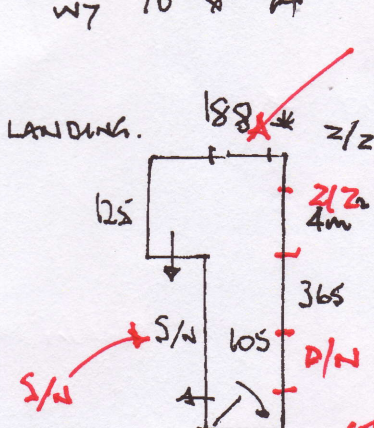 W7 10 8 A
LANDING.
188 A *
Z/Z
125
Z/Z
4m
365
S/N
105
D/N
A
S/N